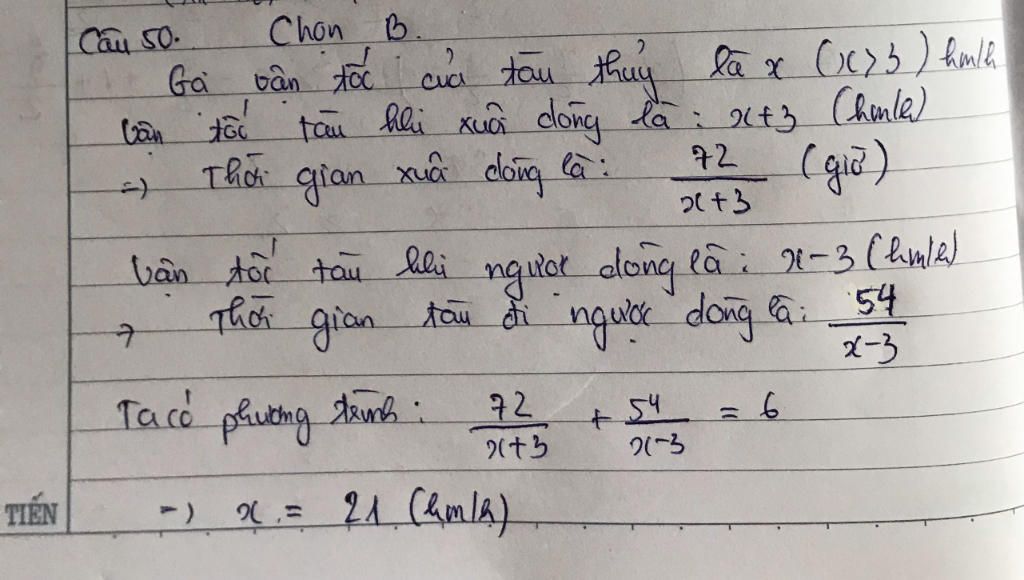 Câu 50. Chọn B.
Gọi vận tốc của tàu thủy là x (x>3) km/h
Vận tốc tàu khi xuôi dòng là: x+3 (km/h)
=) Thời gian xuôi dòng là: 72/(x+3) (giờ)
Vận tốc tàu khi ngược dòng là: x-3 (km/h)
→ Thời gian tàu đi ngược dòng là: 54/(x-3)
Ta có phương trình: 72/(x+3) + 54/(x-3) = 6
-) x = 21 (km/h)
TIẾN